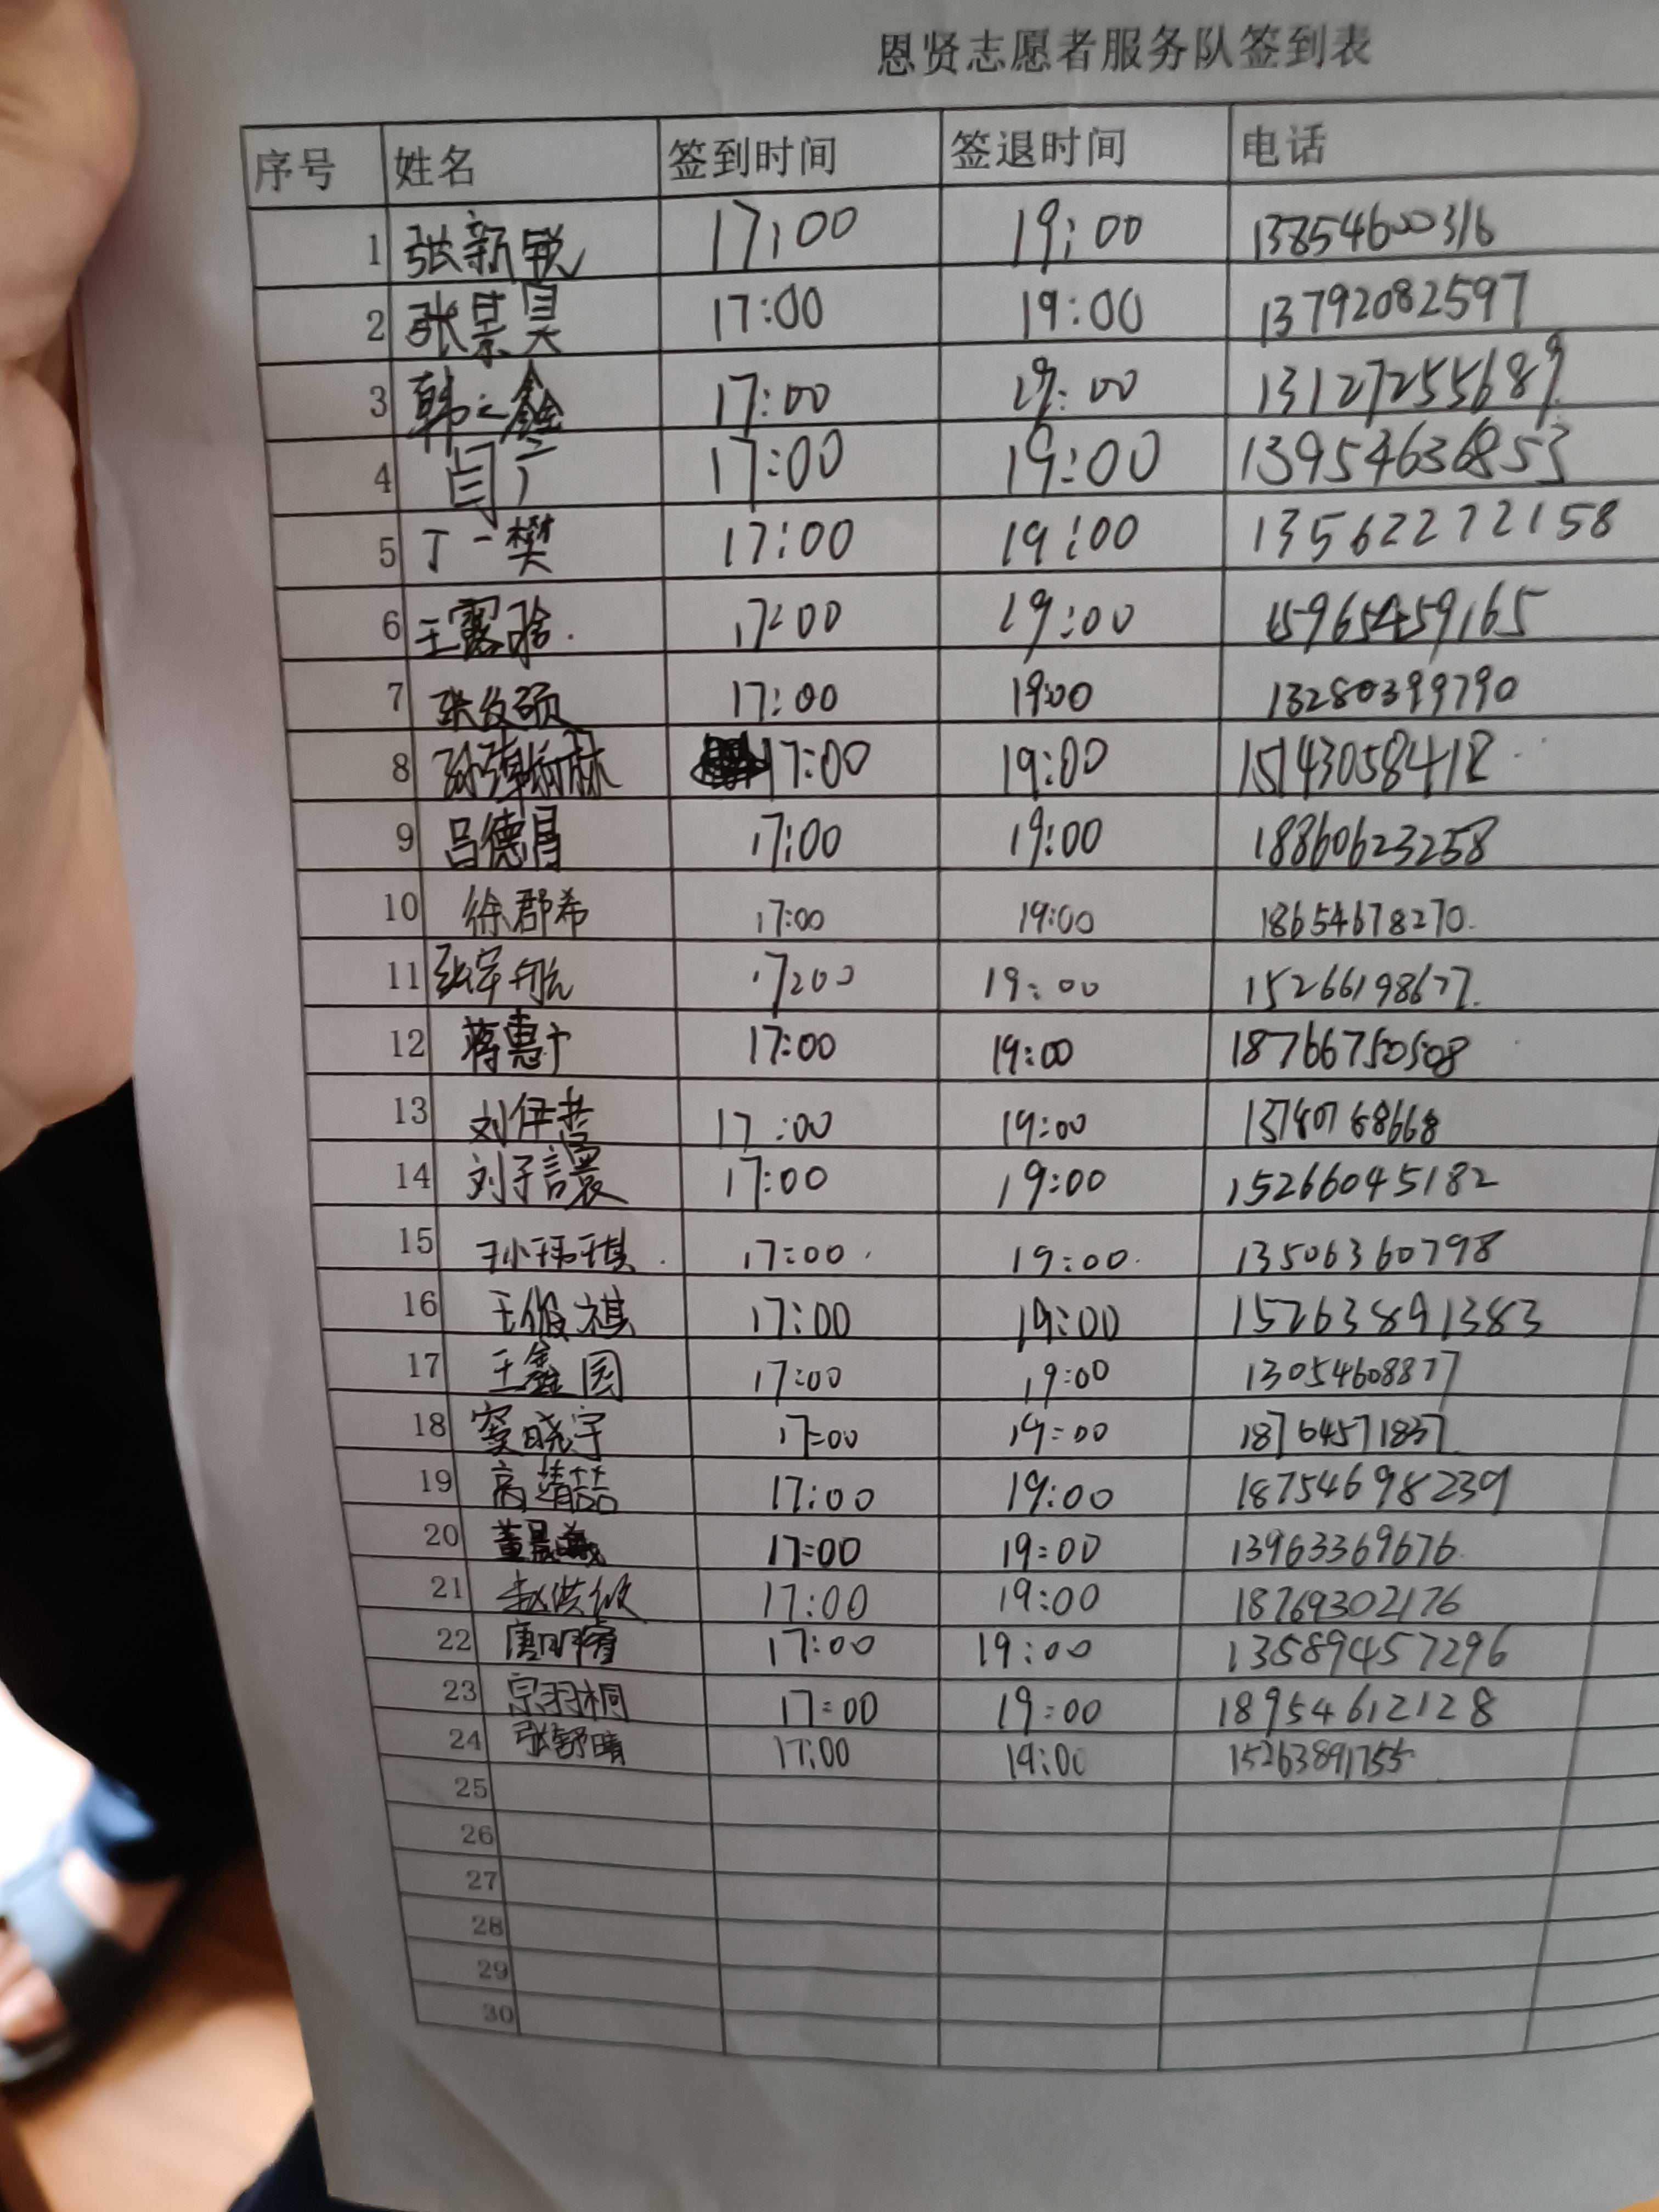 恩贤志愿者服务队签到表
序号 姓名 签到时间 签退时间 电话
1 张新锐 17:00 19:00 13854600316
2 张景昊 17:00 19:00 13792082597
3 韩之鑫 17:00 19:00 13127255689
4 闫广 17:00 19:00 13954636853
5 丁一樊 17:00 19:00 13562272158
6 王露晗 17:00 19:00 15965459165
7 张文硕 17:00 19:00 13280399790
8 17:00 19:00 15143058412
9 吕德昌 17:00 19:00 18860623258
10 徐郡希 17:00 19:00 18654678270
11 张宇航 17:00 19:00 15266198677
12 蒋惠 17:00 19:00 18766750508
13 刘伊 17:00 19:00
14 刘子譞 17:00 19:00 15266045182
15 孙玮琪 17:00 19:00 13506360798
16 王俊祺 17:00 19:00 152638891383
17 王鑫园 17:00 19:00 13054608877
18 窦晓宇 17:00 19:00 18764571837
19 高靖喆 17:00 19:00 18754698239
20 董晨 17:00 19:00 13963369676
21 赵洪 17:00 19:00 18769302176
22 唐明宥 17:00 19:00 13589457296
23 宗羽桐 17:00 19:00 18954612128
24 张舒晴 17:00 19:00 15263891755
25
26
27
28
29
30